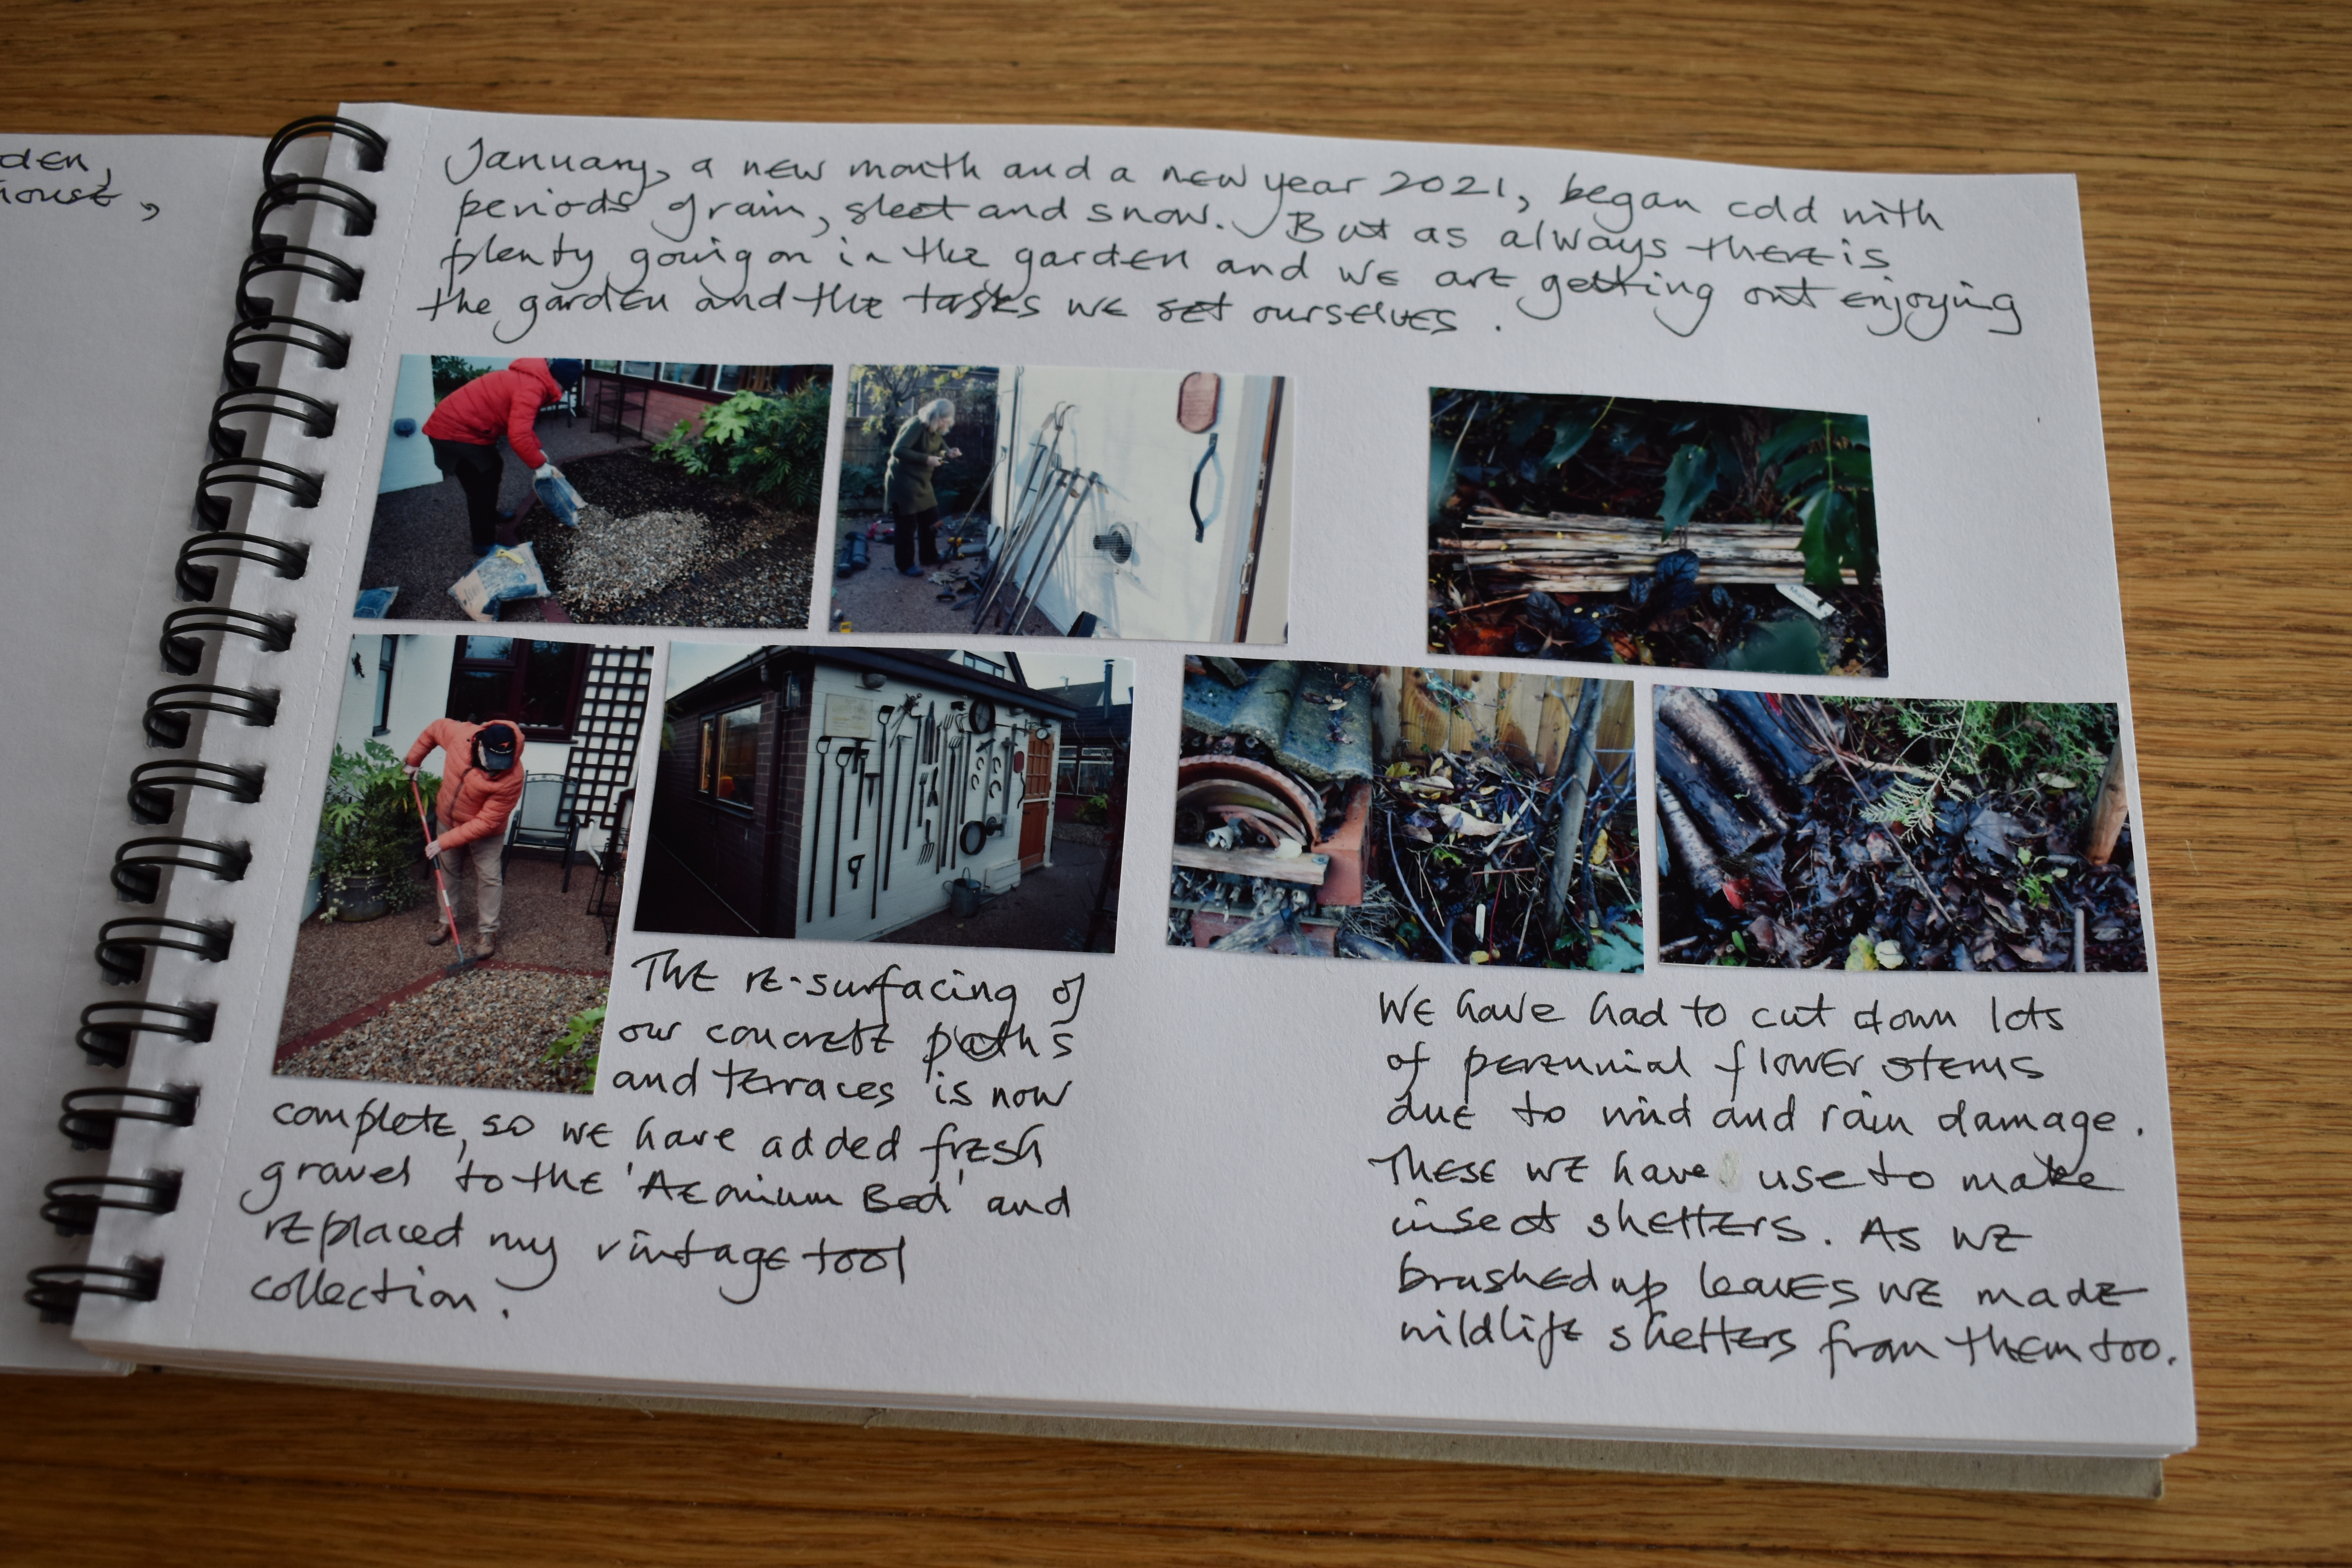 den,
house,
January, a new month and a new year 2021, began cold with
periods of rain, sleet and snow. But as always there is
plenty going on in the garden and we are getting out enjoying
the garden and the tasks we set ourselves.
The re-surfacing of
our concrete paths
and terraces is now
complete, so we have added fresh
gravel to the 'Aeonium Bed' and
replaced my vintage tool
collection.
We have had to cut down lots
of perennial flower stems
due to wind and rain damage.
These we have use to make
insect shelters. As we
brushed up leaves we made
wildlife shelters from them too.